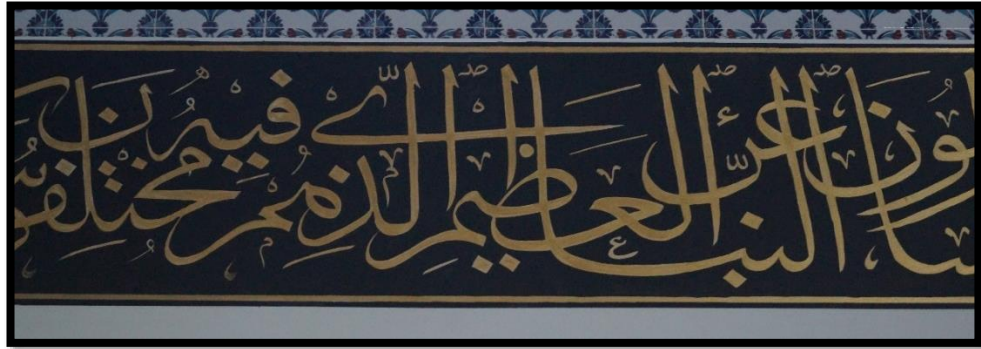 ساءلون عن النبإ العظيم الذي هم فيه مختلفون